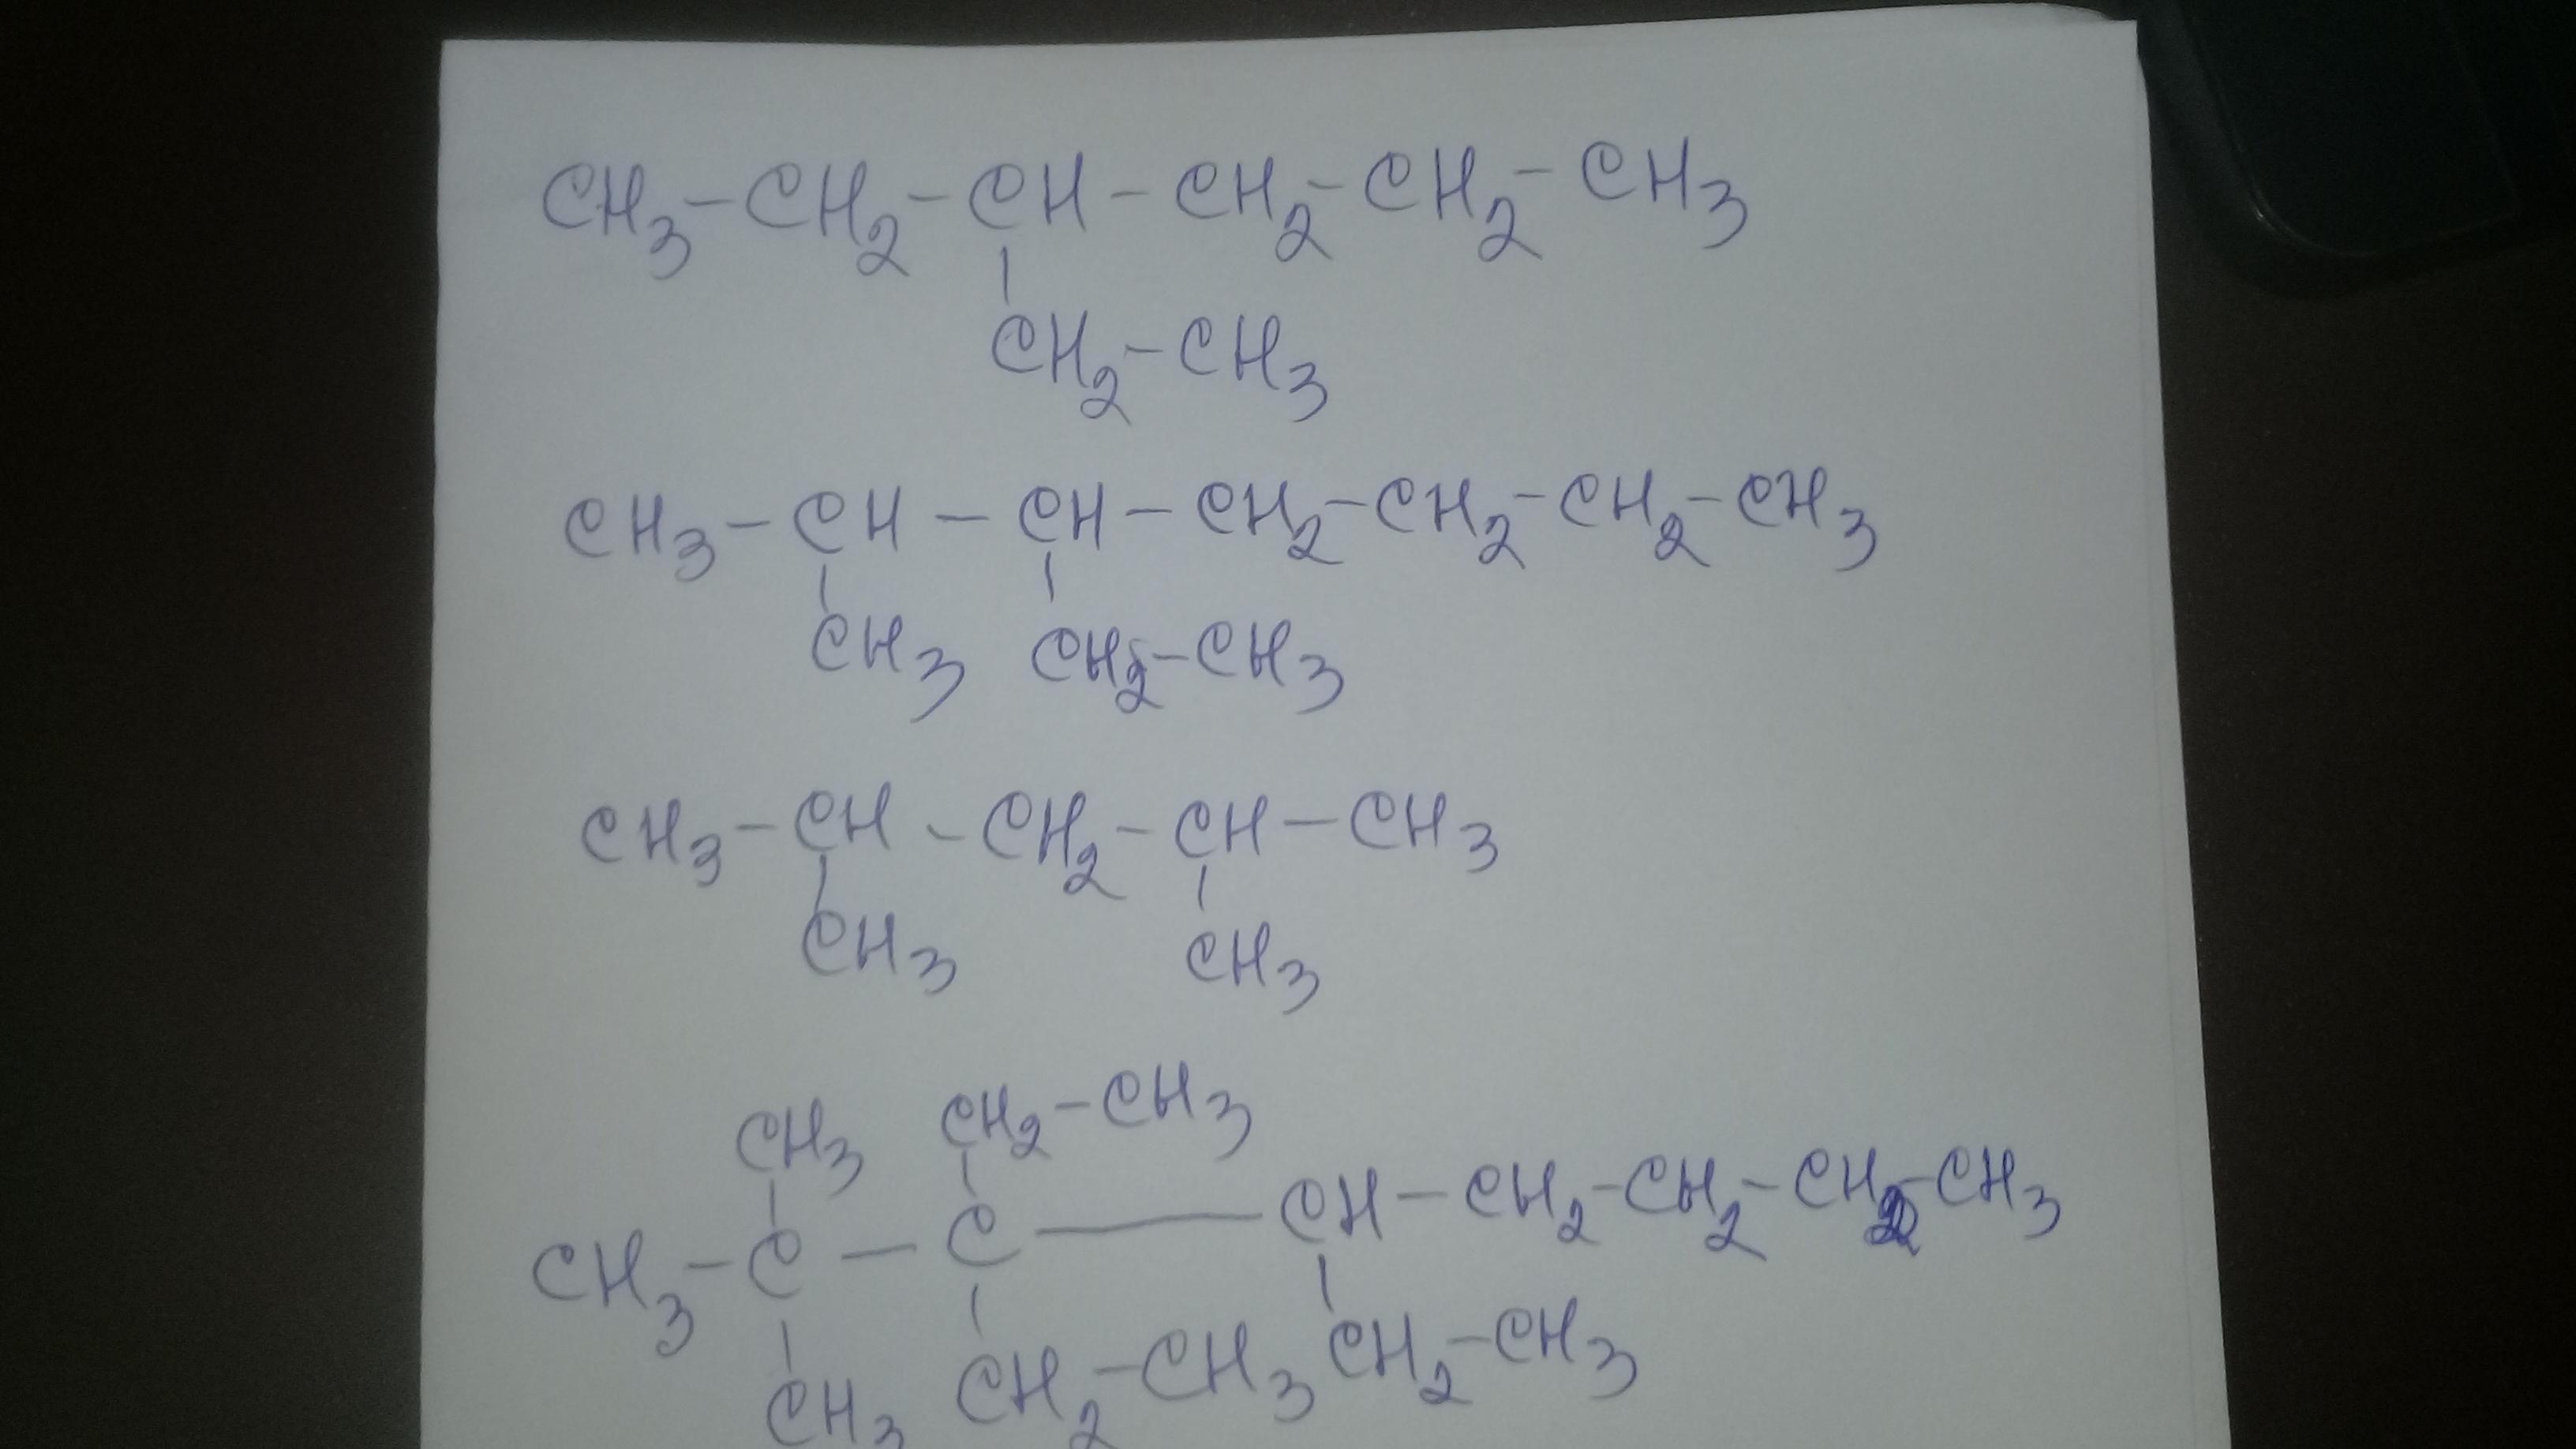 CH₃-CH₂-CH-CH₂-CH₂-CH₃
CH₂-CH₃
CH₃-CH-CH-CH₂-CH₂-CH₂-CH₃
CH₃ CH₂-CH₃
CH₃-CH-CH₂-CH-CH₃
CH₃ CH₃
CH₃ CH₂-CH₃
CH₃-C-C-CH-CH₂-CH₂-CH₂-CH₃
CH₃ CH₂-CH₃ CH₂-CH₃